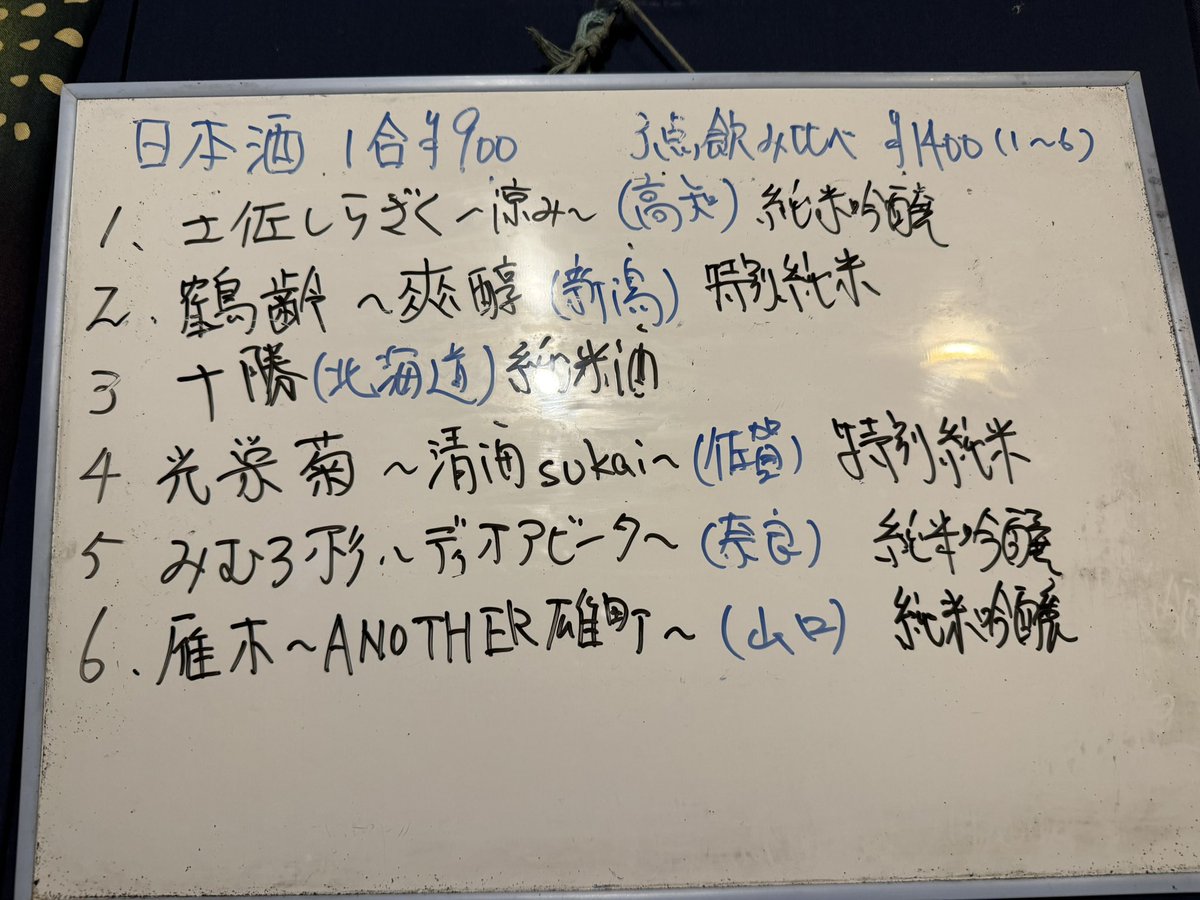 日本酒 1合¥900 3点飲み比べ ¥1400(1~6)
1、土佐しらぎく~涼み~(高知) 純米吟醸
2.鶴齢 ~爽醇(新潟) 特別純米
3 十勝(北海道)純米酒
4 光栄菊 ~清酒sukai~(佐賀) 特別純米
5 みむろ杉~ディオアビータ~(奈良) 純米吟醸
6.雁木~ANOTHER雄町~(山口) 純米吟醸